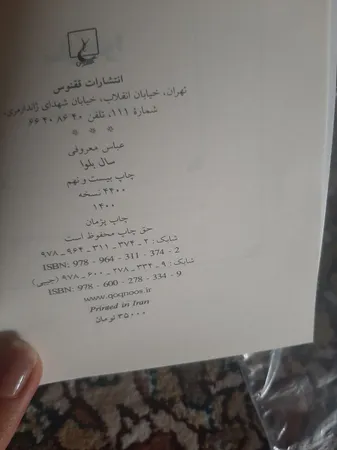 انتشارات ققنوس
تهران، خیابان انقلاب، خیابان شهدای ژاندارمری،
شمارهٔ ۱۱۱، تلفن ۶۶۴۰۸۶۴۰
* * *
عباس معروفی
سال بلوا
چاپ بیست و نهم
۴۴۰۰ نسخه
۱۴۰۰
چاپ پژمان
حق چاپ محفوظ است
شابک: ۲ـ۳۷۴ـ۳۱۱ـ۹۶۴ـ۹۷۸
ISBN: 978 - 964 - 311 - 374 - 2
شابک: ۹ـ۳۳۴ـ۲۷۸ـ۶۰۰ـ۹۷۸ (جیبی)
ISBN: 978 - 600 - 278 - 334 - 9
www.qoqnoos.ir
Printed in Iran
۳۵۰۰۰ تومان